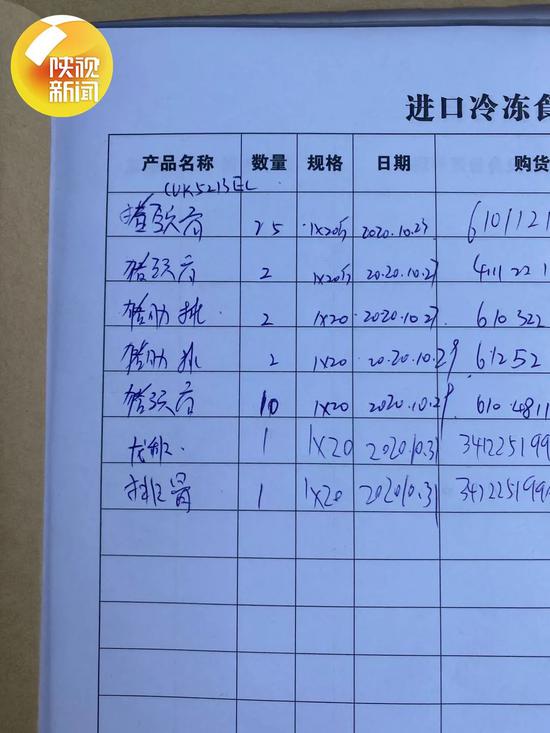 陕视
新闻
进口冷冻食
产品名称 数量 规格 日期 购货
猪颈骨 25 1X20斤 2020.10.23 6101121
猪颈骨 2 1X20斤 2020.10.27 411221
猪肋排 2 1X20 2020.10.27 610322
猪肋排 2 1X20 2020.10.29 61252
猪颈骨 10 1X20 2020.10.29 610.4811
1 1X20 2020.10.31 34122519
排骨 1 1X20 2020.10.31 34122519